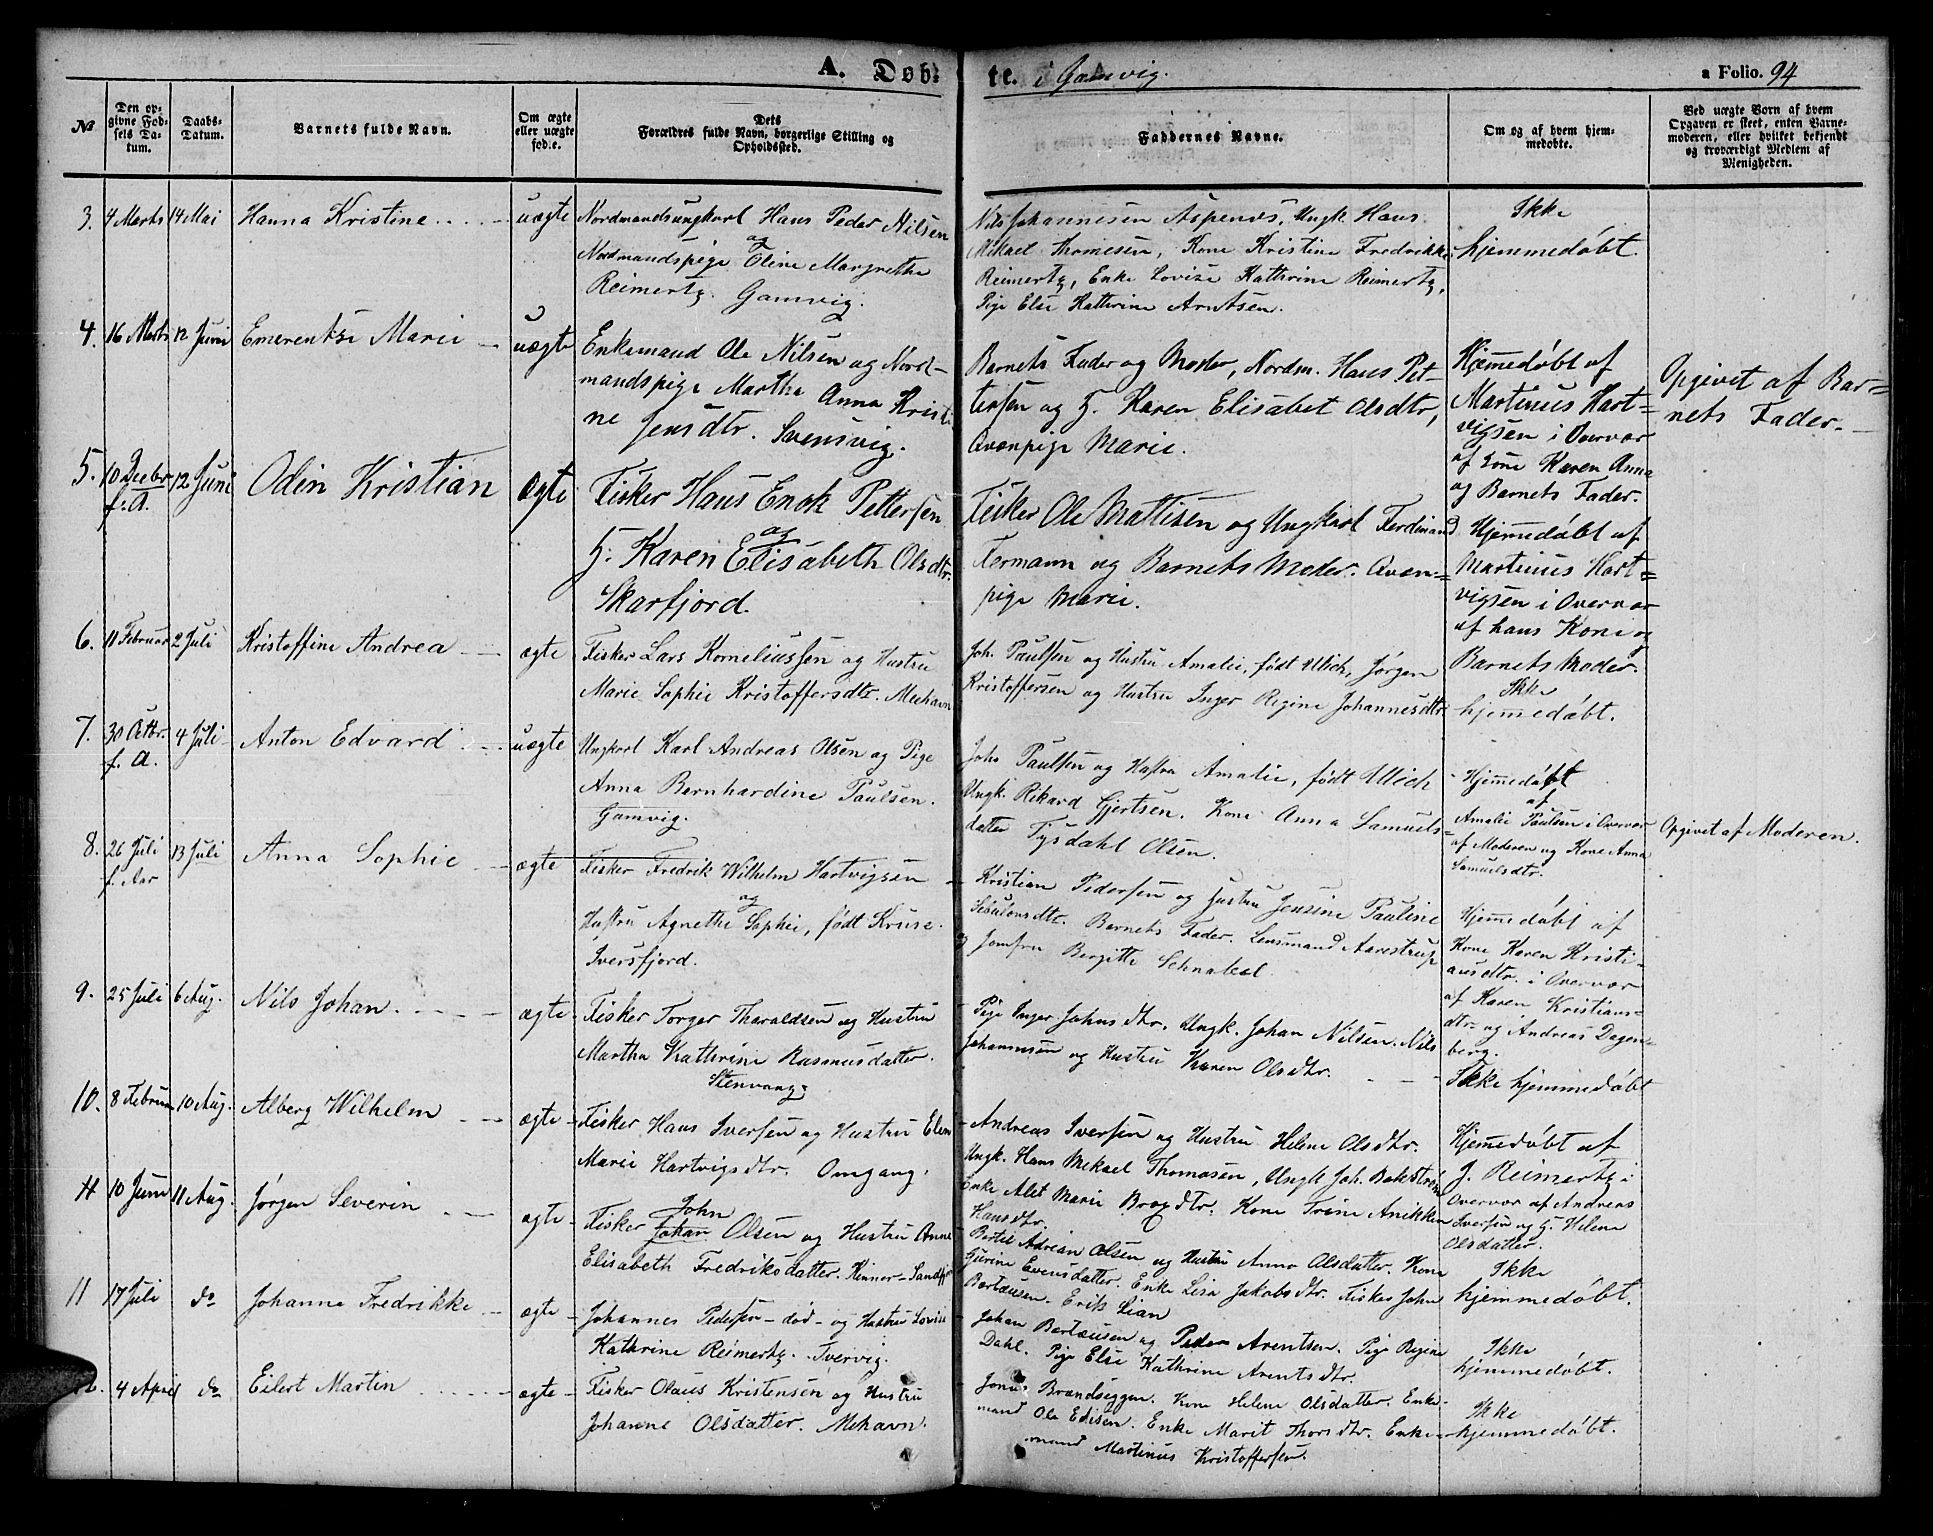 A. Døbte. i Gamvig.
a Folio. 94
No
Den opgivne Fødsels Datum.
Daabs-Datum.
Barnets fulde Navn.
Om ægte eller uægte fød.e.
Dets Forældres fulde Navn, borgerlige Stilling og Opholdssted.
Faddernes Navne.
Om og af hvem hjemmedøbte.
Ved uægte Børn af hvem Opgaven er skeet, enten Barnemoderen, eller hvilket bekjendt og troværdigt Medlem af Menigheden.
3. 4 Marts 14 Mai Hanna Kristine uægte
Nordmandsungkarl Hans Peder Nilsen
og
Nordmandspige Oline Margrethe
Reimertz. Gamvig.
Nils Johannesen Aspenes, Ungk. Hans
Mikael Thomesen, Kone Kristine Fredrikke
Reimertz, Enke Lovise Kathrine Reimertz,
Pige Else Kathrine Arntsen.
Ikke
hjemmedøbt.
4. 16 Marts 12 Juni Emerentse Marie uægte
Enkemand Ole Nilsen og Nord-
mandspige Martha Anna Kristi-
ne Jensdtr. Svensvig.
Barnets Fader og Moder, Nordm. Hans Pet-
tersen og H. Karen Elisabet Olsdtr,
Qvænpige Marie.
Hjemmedøbt af
Martinus Hart-
vigsen i Overvær
af Kone Karen Anna
og Barnets Fader.
Opgivet af Bar-
nets Fader.
5. 10 Decbr f. A. 12 Juni Odin Kristian ægte
Fisker Hans Enok Pettersen
og
H. Karen Elisabeth Olsdtr.
Skarfjord.
Fisker Ole Mattisen og Ungkarl Ferdinand
Fermann og Barnets Moder. Qvæn-
pige Marie.
Hjemmedøbt af
Martinus Hart-
vigsen i Overvær
af hans Kone og
Barnets Moder.
6. 11 Februar 2 Juli Kristoffine Andrea ægte
Fisker Lars Korneliussen og Hustru
Marie Sophie Kristoffersdtr. Mehavn
Joh. Paulsen og Hustru Amalie, født Ulich, Jørgen
Kristoffersen og Hustru Inger Regine Johannesdtr
Ikke
hjemmedøbt.
7. 30 Octbr. f. A. 4 Juli Anton Edvard uægte
Ungkarl Karl Andreas Olsen og Pige
Anna Bernhardine Paulsen.
Gamvig.
Johs Paulsen og Hustru Amalie, født Ulich
Ungk. Rikard Gjertsen. Kone Anna Samuels-
datter Tysdahl Olsen.
Hjemmedøbt
af
Amalie Paulsen i Overvær
af Moderen og Kone Anna
Samuelsdtr.
Opgivet af Moderen.
8. 26 Juli f. Aar 13 Juli Anna Sophie ægte
Fisker Fredrik Wilhelm Hartvigsen
og
Hustru Agnethe Sophie, født Kruse.
Iversfjord.
Kristian Pedersen og Hustru Jensine Pauline
Sebulonsdtr. Barnets Fader. Lensmand Aarestrup
og Jomfru Birgitte Schnabel.
Hjemmedøbt af
Kone Karen Kristi-
ansdtr. i Overvær
af Karen Kristians-
dtr. og Andreas Dagen-
berg.
9. 25 Juli 6 Aug. Nils Johan. ægte
Fisker Torger Tharaldsen og Hustru
Martha Kathrine Rasmusdatter.
Stenvaag
Pige Inger Johnsdtr. Ungk. Johan Nilsen. Nils
Johannesen og Hustru Karen Olsdtr.
Ikke hjemmedøbt
10. 8 Februar 10 Aug. Alberg Wilhelm ægte
Fisker Hans Iversen og Hustru Elen
Marie Hartvigsdtr. Omgang.
Andreas Iversen og Hustru Helene Olsdtr.
Ungk. Hans Mekael Thomasen, Ungk Joh. Bekstrøm
Enke Alet Marie Broxdtr. Kone Trine Anikken
Hansdtr.
Hjemmedøbt af
J. Reimertz i
Overvær af Andreas
Iversen og H. Helene
Olsdatter.
11 10 Juni 11 Aug. Jørgen Severin ægte
John
Fisker Johan Olsen og Hustru Anne
Elisabeth Fredriksdatter. Kinner-Sandfj
Bertel Adrian Olsen og Hustru Anna Olsdatter. Kone
Gjerine Evensdatter. Enke Lisa Jakobsdtr. Fisker John
Bertausen. Erik Lian
Ikke
hjemmedøbt.
11 17 Juli do Johanna Fredrikke ægte
Johannes Pedersen - død - og Hustru Lovise
Kathrine Reimertz. Tvervig.
Johan Bertausen og Peder Arentsen. Pige Regine
Dahl. Pige Else Kathrine Arentsdtr.
Ikke
hjemmedøbt.
12. 4 April do Eilert Martin ægte
Fisker Olaus Kristensen og Hustru
Johanne Olsdatter. Mehavn.
Jonas Brandseggen. Kone Helene Olsdatter. Enke-
mand Ole Edisen. Enke Marit Thorsdtr. Enke-
mand Martinus Kristoffersen.
Ikke
hjemmedøbt.